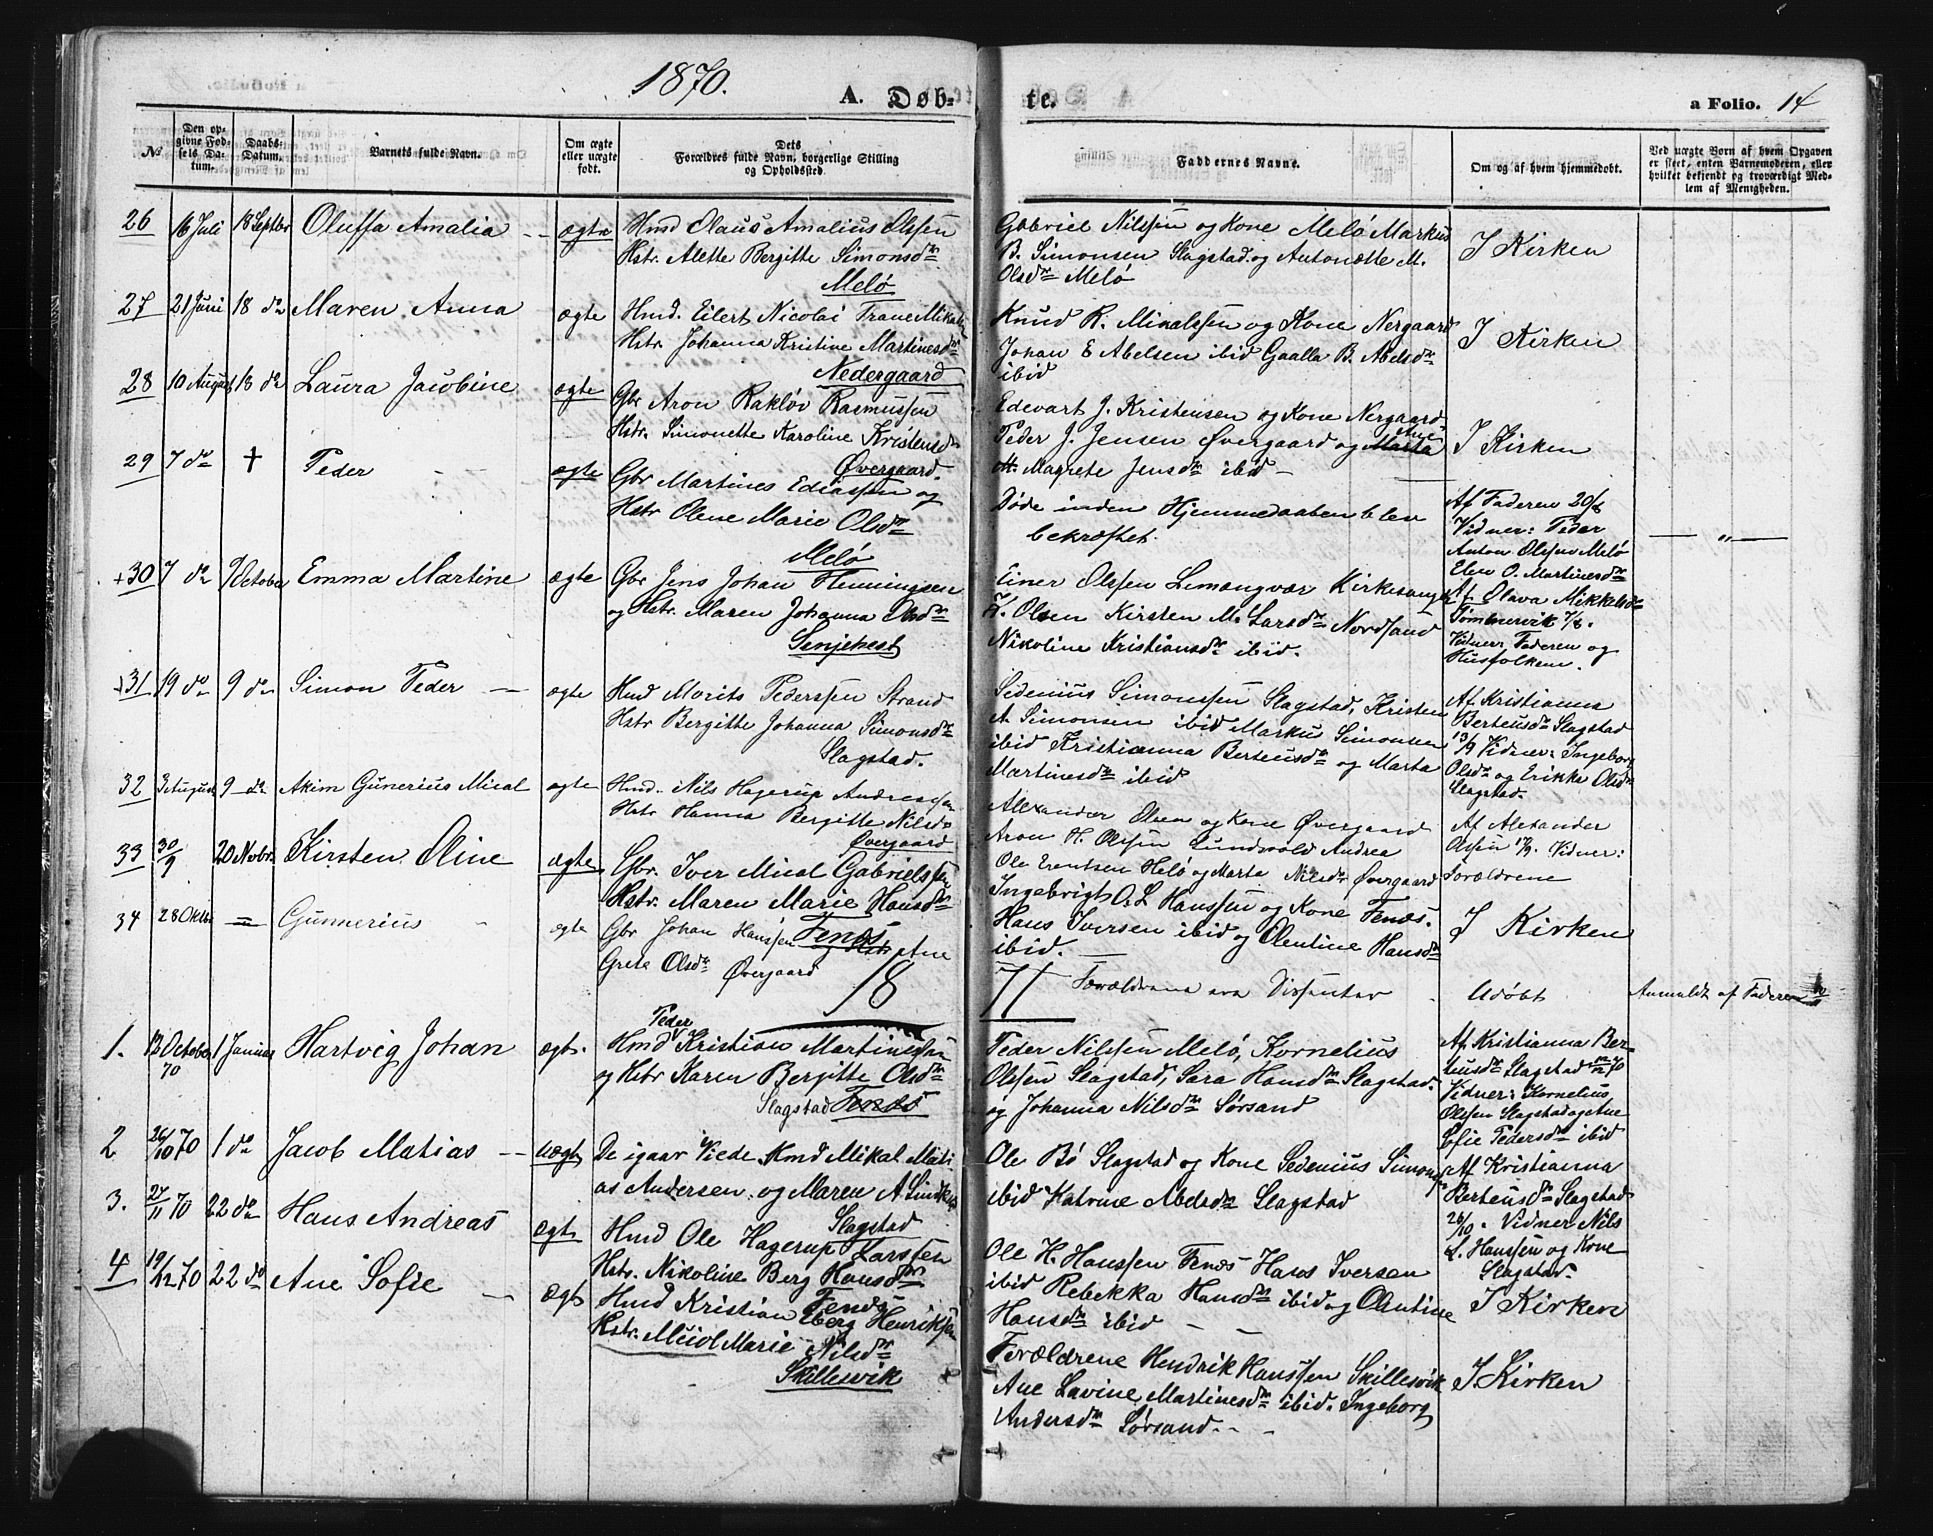 1870.
A. Døb-
te.
a Folio. 14
№
Den op-
givne Fød-
sels Da-
tum.
Daabs-
Datum.
Barnets fulde Navn.
Om ægte
eller uægte
født.
Dets
Forældres fulde Navn, borgerlige Stilling
og Opholdssted.
Faddernes Navne.
Om og af hvem hjemmedøbt.
Ved uægte Børn af hvem Opgaven
er skeet, enten Barnemoderen, eller
hvilket bekjendt og troværdigt Med-
lem af Menigheden.
26 16 Juli 18 Septbr Oluffa Amalia ægte
Hmd Olaus Amalius Olssen
Hstr. Alette Bergitte Simonsdr
Melö
Gabriel Nilssen og Kone Melö Markus
B. Simonsen Slagstad og Antonætte M.
Olsdr Melö
I Kirken
27 21 Juni 18 do Maren Anna ægte
Hmd. Eilert Nicolai Trane
Hstr Johanna Kristine Martinesdr
Nedergaard
Knud R. Mikalssen og Kone Nergaard
Johan E Abelsen ibid Gaalla B. Abelsdr
ibid
I Kirken
28 10 August 18 do Laura Jacobine ægte
Gbr Aron Rakløv Rasmussen
Hstr. Simonette Karoline Kristensdr
Øvergaard.
Edevart J. Kristensen og Kone Nergaard
Peder J. Jensen Øvergaard og Marta
M. Magrete Jensdr ibid
I Kirken
29 7 do † Peder ægte
Gbr Martines Ediassen og
Hstr Olene Marie Olsdr
Melö
Döde inden Hjemmedaaben blev
bekræftet.
Af Faderen 20/8
Vidner: Peder
Anton Olssen Melö
Elen O. Martinesdr
— " —
+30 7 do 9 October Emma Martine ægte
Gbr Jens Johan Henningsen
og Hstr. Maren Johanna Olsdr
Sinjehest
Einer Olssen Lemangvær Kirkesanger
K. Olsen Kirsten M. Larsdr Nordsand
Nikoline Kristiansdr ibid.
Af Olava Mikkelsdr
Tömmervik 7/8.
Vidner, Faderen og
Husfolkene.
+31 19 do 9 do Simon Peder ægte
Hmd Morits Pederssen Strand
Hstr Bergitte Johanna Simonsdr
Slagstad.
Sidenius Simonssen Slagstad, Kristen
A. Simonsen ibid Markus Simonsen
ibid Kristianna Berteusdr og Marta
Martinesdr ibid
Af Kristianna
Berteusdr Slagstad
13/9 Vidner: Ingeborg
Olsdr og Erikke Olsdr
Slagstad.
32 3 August 9 do Akim Gunerius Mical ægte
Hmd. Nils Hagerup Andreassen
Hstr Hanna Bergitte Nilsdr
Øvergaard
Alexander Olsen og Kone Øvergaard
Aron H. Olssen Lundvold Andrea
Ole Erentsen Melö og Marta Nilsdr Øvergaard
Af Alexander
Olssen 17/9. Vidner:
Forældrene
33 30/9 20 Novbr. Kirsten Oline ægte
Gbr. Iver Mical Gabrielssen
Hstr. Maren Marie Hansdr
Fenes
Ingebrigt O. L Hanssen og Kone Fenes.
Hans Iversen ibid og Olentine Hansdr
ibid.
I Kirken
34 28 Oktbr = Gunnerius ægte
Gbr Johan Hanssen og Hstr Ane
Grete Olsdr Øvergaard
Forældrene ere Dissenter
Udöbt
Anmeldt af Faderen
18
71
1. 13 October 70 1 Januar Hartvig Johan ægt.
Peder
Hmd Kristian Martinessen
og Hstr Karen Bergitte Olsdr
Slagstad Fenes
Peder Nilssen Melö, Kornelius
Olssen Slagstad, Sara Hansdr Slagstad.
og Johanna Nilsdr Sörsand
Af Kristianna Ber-
teusdr Slagstad
Vidner: Kornelius
Olssen Slagstad og Ane
Sofie Pedersdr ibid
2 26/10 70 1 do Jacob Matias uægt
De igaar Viede Hmd Mikal Mati-
as Andersen og Maren A.
Slagstad
Ole Bö Slagstad og Kone Sedenius Simonsen
ibid Katrine Abelsdr Slagstad
Af Kristianna
Berteusdr Slagstad
26/10. Vidner Nils
L. Hanssen og Kone
Slagstad.
3. 27/11 70 22 do Hans Andreas Ægt
Hmd Ole Hagerup Larssen
Hstr. Nikoline Berg Hansdr
Fenes
Ole H. Hanssen Fenes Hans Iversen
ibid Rebekka Hansdr ibid og Olentine
Hansdr ibid
I Kirken
4 19/12 70 22 do Ane Sofie Ægt
Hmd Kristian Eberg Henriksen
Hstr. Marie Nilsdr
Skillesvik
Forældrene Hendrik Hanssen Skillesvik
Ane Lavine Martinesdr ibid. Ingeborg
Andersdr Sörsand.
I Kirken